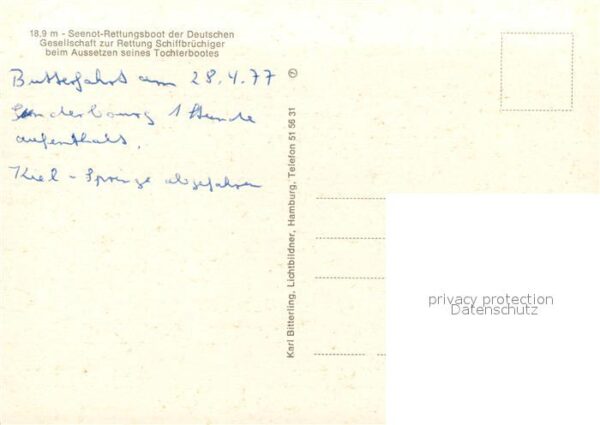 18.9 m - Seenot-Rettungsboot der Deutschen
Gesellschaft zur Rettung Schiffbrüchiger
beim Aussetzen seines Tochterbootes
Butterfahrt am 28.4.77
Sonderbourg 1 Stunde
aufenthalt.
Kiel - Sprenge abgefahren
Karl Bitterling, Lichtbildner, Hamburg, Telefon 51 56 31
privacy protection
Datenschutz